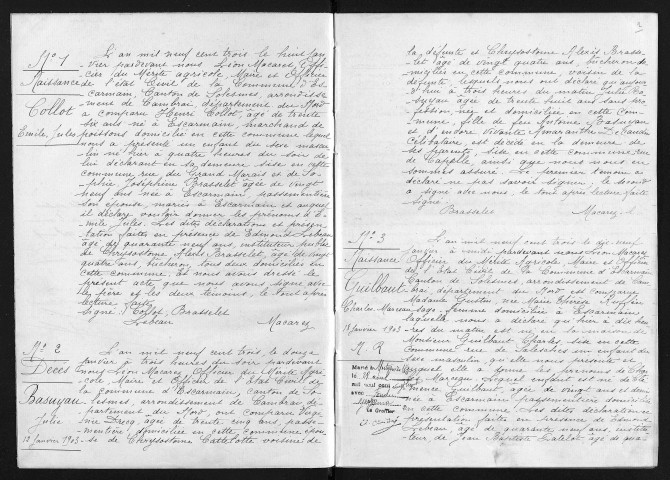 No 1
Naissance
Collot
Emile, Jules
L'an mil neuf cent trois le huit jan
vier pardevant nous Léon Macarez, Offi
cier du Mérite agricole, Maire et Officier
de l'état Civil de la Commune d'Es
carmain, Canton de Solesmes, arrondisse
ment de Cambrai, département du Nord
a comparu Henri Collot, âgé de trente
six ans né à Escarmain marchand de
poissons domicilié en cette commune lequel
nous a présenté un enfant du sexe mascu
lin né hier à quatre heures du soir de
lui déclarant en sa demeure, sise en cette
commune rue du Grand Marais et de Jo
séphine Brasselet âgée de vingt
neuf ans née à Escarmain passementière
son épouse, mariés à Escarmain et auquel
il déclare vouloir donner les prénoms d'E
mile Jules. Les dites déclaration et présen
tation faites en présence de Edmond Lebeau
âgé de quarante neuf ans, instituteur public
de Chrysostome Alexis Brasselet, âgé de vingt
quatre ans bûcheron, tous deux domiciliés en
cette commune. Et nous avons dressé le
présent acte, que nous avons signé avec
le père et les deux témoins, le tout après
lecture faite.
Signé: Collot, Brasselet
Lebeau Macarez
No 2
Décès
Basuyau
Julie
12 Janvier 1903
L'an mil neuf cent trois, le douze
janvier à trois heures du soir pardevant
nous Léon Macarez Officier du Mérite Agri
cole Maire et Officier de l'Etat Civil de
la Commune d'Escarmain, canton de So
lesmes, arrondissement de Cambrai, dé
partement du Nord, ont comparu
âgée de trente cinq ans, passe
mentière, domiciliée en cette commune épou
se de Chrysostome voisine de
la défunte et Chrysostome Alexis Brasse
let âgé de vingt quatre ans, bûcheron do
micilié en cette commune, voisin de la
défunte, lesquels nous ont déclaré qu'aujour
d'hui à trois heures du matin Julie Ba
suyau âgée de trente huit ans sans pro
fession, née et domiciliée en cette com
mune, fille de Antoine Basuyau
et d'
Célibataire, est décédée en la demeure de
ses parents, sise en cette commune, rue
de Capelle, ainsi que nous nous en
sommes assuré. Le premier témoin a
déclaré ne pas savoir signer, le second
a signé avec nous, le tout après lecture faite.
Signé:
Brasselet Macarez
No 3
Naissance
Guilbaut
Charles, Marceau
18 janvier 1903
L'an mil neuf cent trois le dix-neuf
janvier à midi, pardevant nous Léon Macarez
Officier du Mérite Agricole, Maire et Officier
de l'Etat Civil de la Commune d'Escarmain
Canton de Solesmes, arrondissement de Cam
brai, département du Nord est comparue
Madame Gustin, née Marie Thérèse
sage femme domiciliée à Escarmain
laquelle nous a déclaré que hier à dix heu
res du matin est né, en la maison de
Monsieur Guilbaut Charles, sise en cette
Commune rue de Salesches un enfant du
sexe masculin qu'elle nous présente et
auquel elle a donné les prénoms de Char
les Marceau. Lequel enfant est né de
Clémence Guilbaut âgée de vingt ans
née à Escarmain passementière domiciliée
en cette commune. Les dites déclaration et
présentation faites en présence de Edmond
Lebeau âgé de quarante neuf ans, institu
teur, de Jean Baptiste âgé de qua